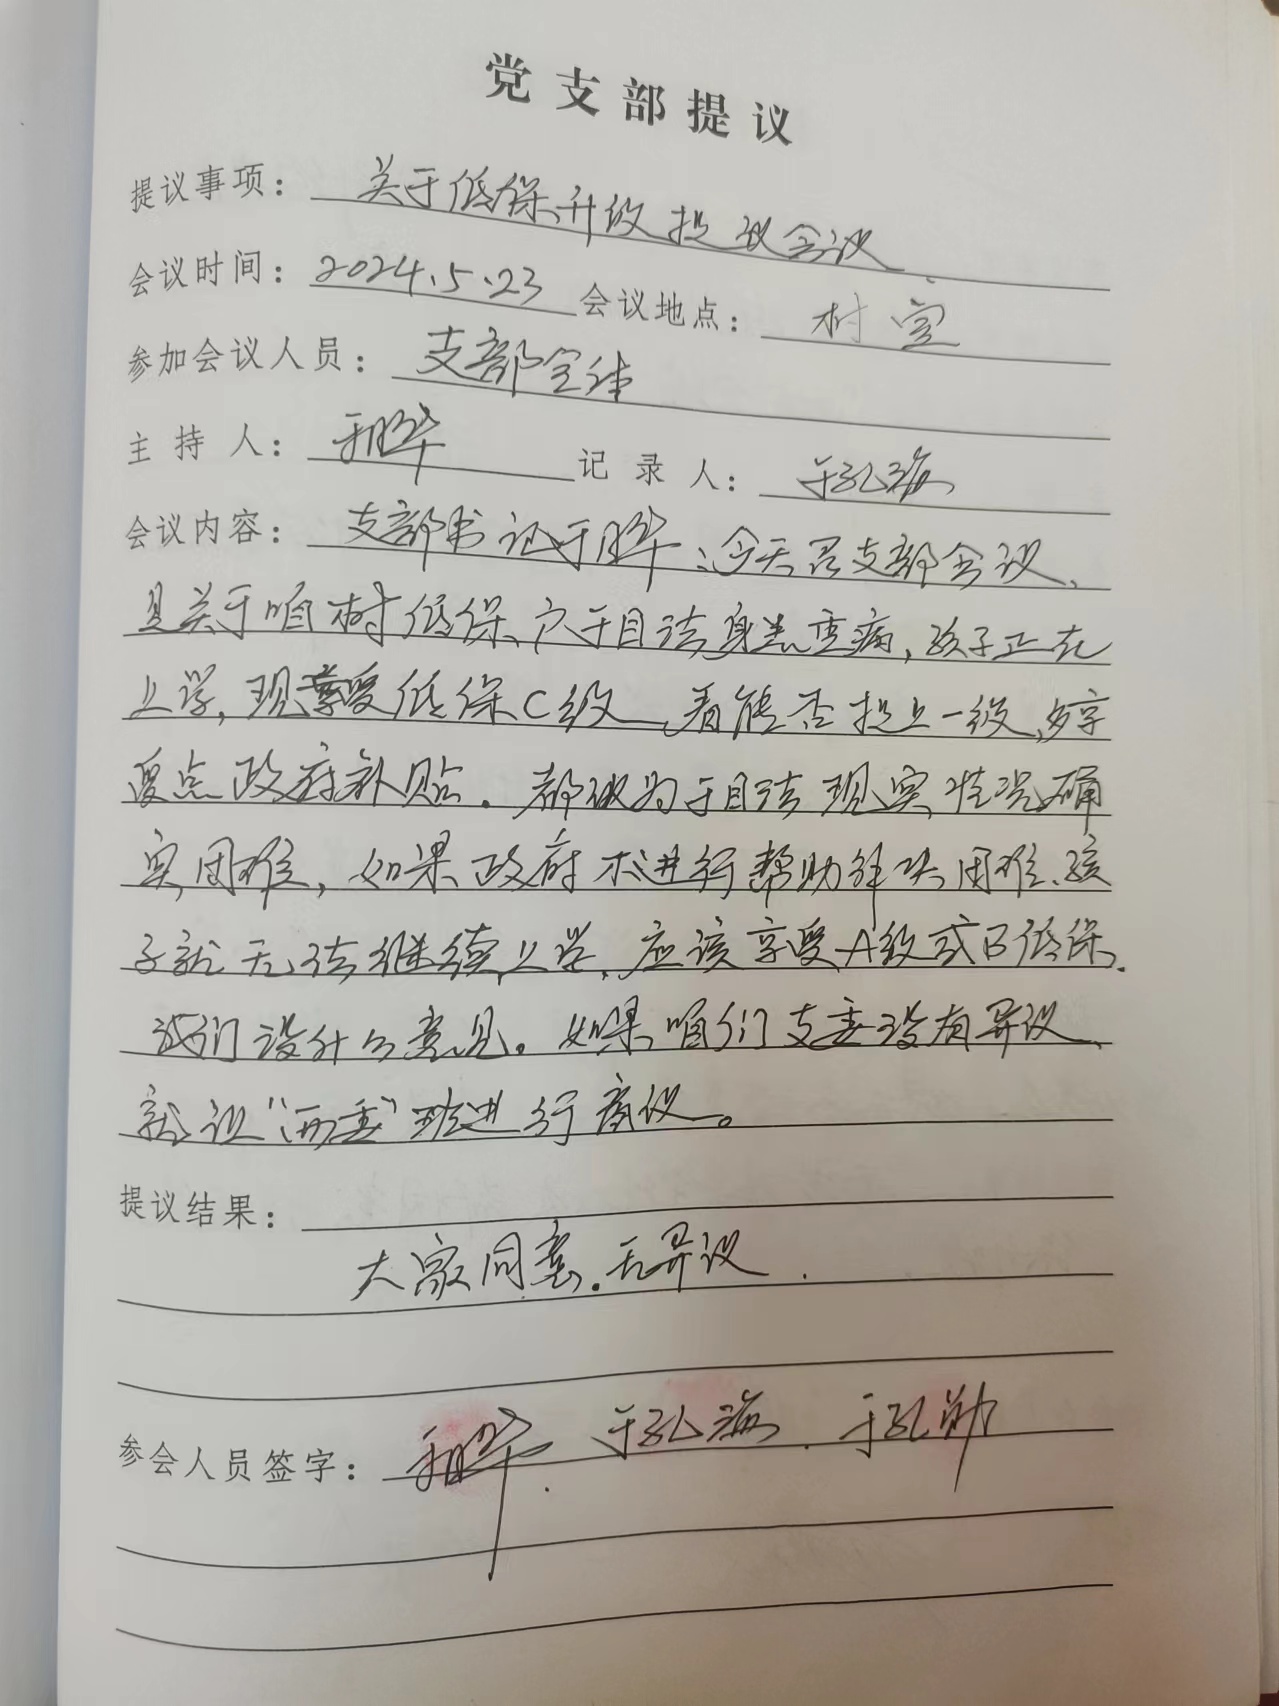 党支部提议
提议事项：关于低保升级提议会议
会议时间：2024.5.23 会议地点：村室
参加会议人员：支部全体
主持人：于胜华 记录人：于孔海
会议内容：支部书记于胜华：今天召支部会议、
是关于咱村低保户于目法身患重病，孩子正在
上学，现享受低保C级，看能否提上一级，多享
受点政府补贴。都认为于目法现实情况确
实困难，如果政府不进行帮助解决困难、孩
子就无法继续上学，应该享受A级或B低保.
我们没什么意见。如果咱们支委没有异议、
就让“两委”班进行商议。
提议结果：
大家同意.无异议.
参会人员签字：于胜华.于孔海.于孔勋